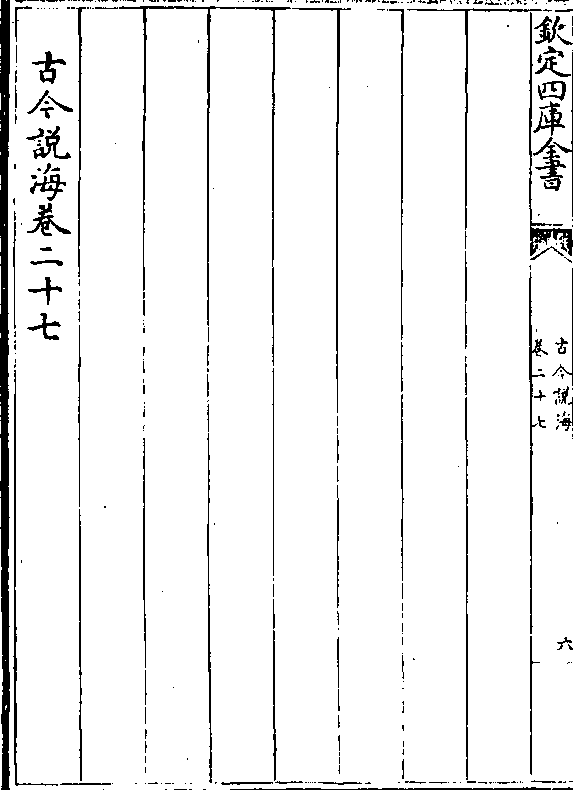 欽定四庫全書
古今說海
卷二十七
六
古今說海卷二十七